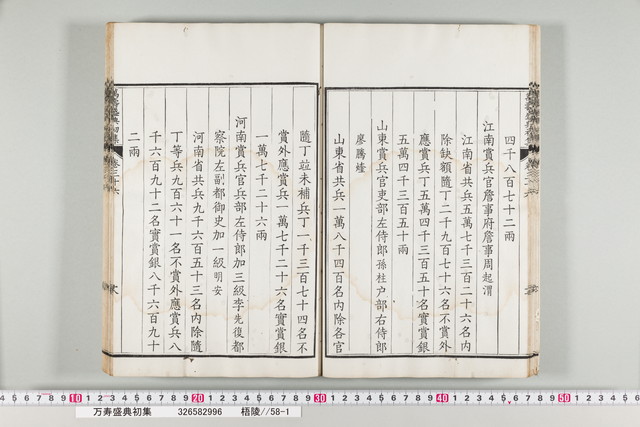 四千八百七十二兩
江南賞兵官詹事府詹事周起渭
江南省共兵五萬七千三百二十六名內
除缺額隨丁二千九百七十六名不賞外
應賞兵丁五萬四千三百五十名實賞銀
五萬四千三百五十兩
山東賞兵官吏部左侍郎孫柱户部右侍郎
廖騰煃
山東省共兵一萬八千四百名內除各官
隨丁竝未補兵丁一千三百七十四名不
賞外應賞兵一萬七千二十六名實賞銀
一萬七千二十六兩
河南賞兵官兵部左侍郎加三級李先復都
察院左副都御史加一級明安
河南省共兵九千六百五十三名內除隨
丁等兵九百六十一名不賞外應賞兵八
千六百九十二名實賞銀八千六百九十
二兩
1 2 3 4 5 6 7 8 9 10 1 2 3 4 5 6 7 8 9 20 1 2 3 4 5 6 7 8 9 30 1 2 3 4 5 6 7 8 9 40 1 2 3 4 5 6 7 8 9 50
万寿盛典初集 326582996 梧陵//58-1